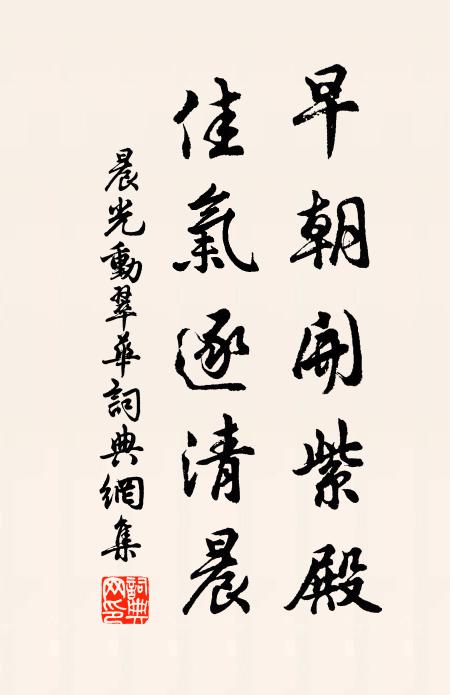 早朝開紫殿
佳氣逐清晨
晨光動翠華詞典網集
詞典
网印